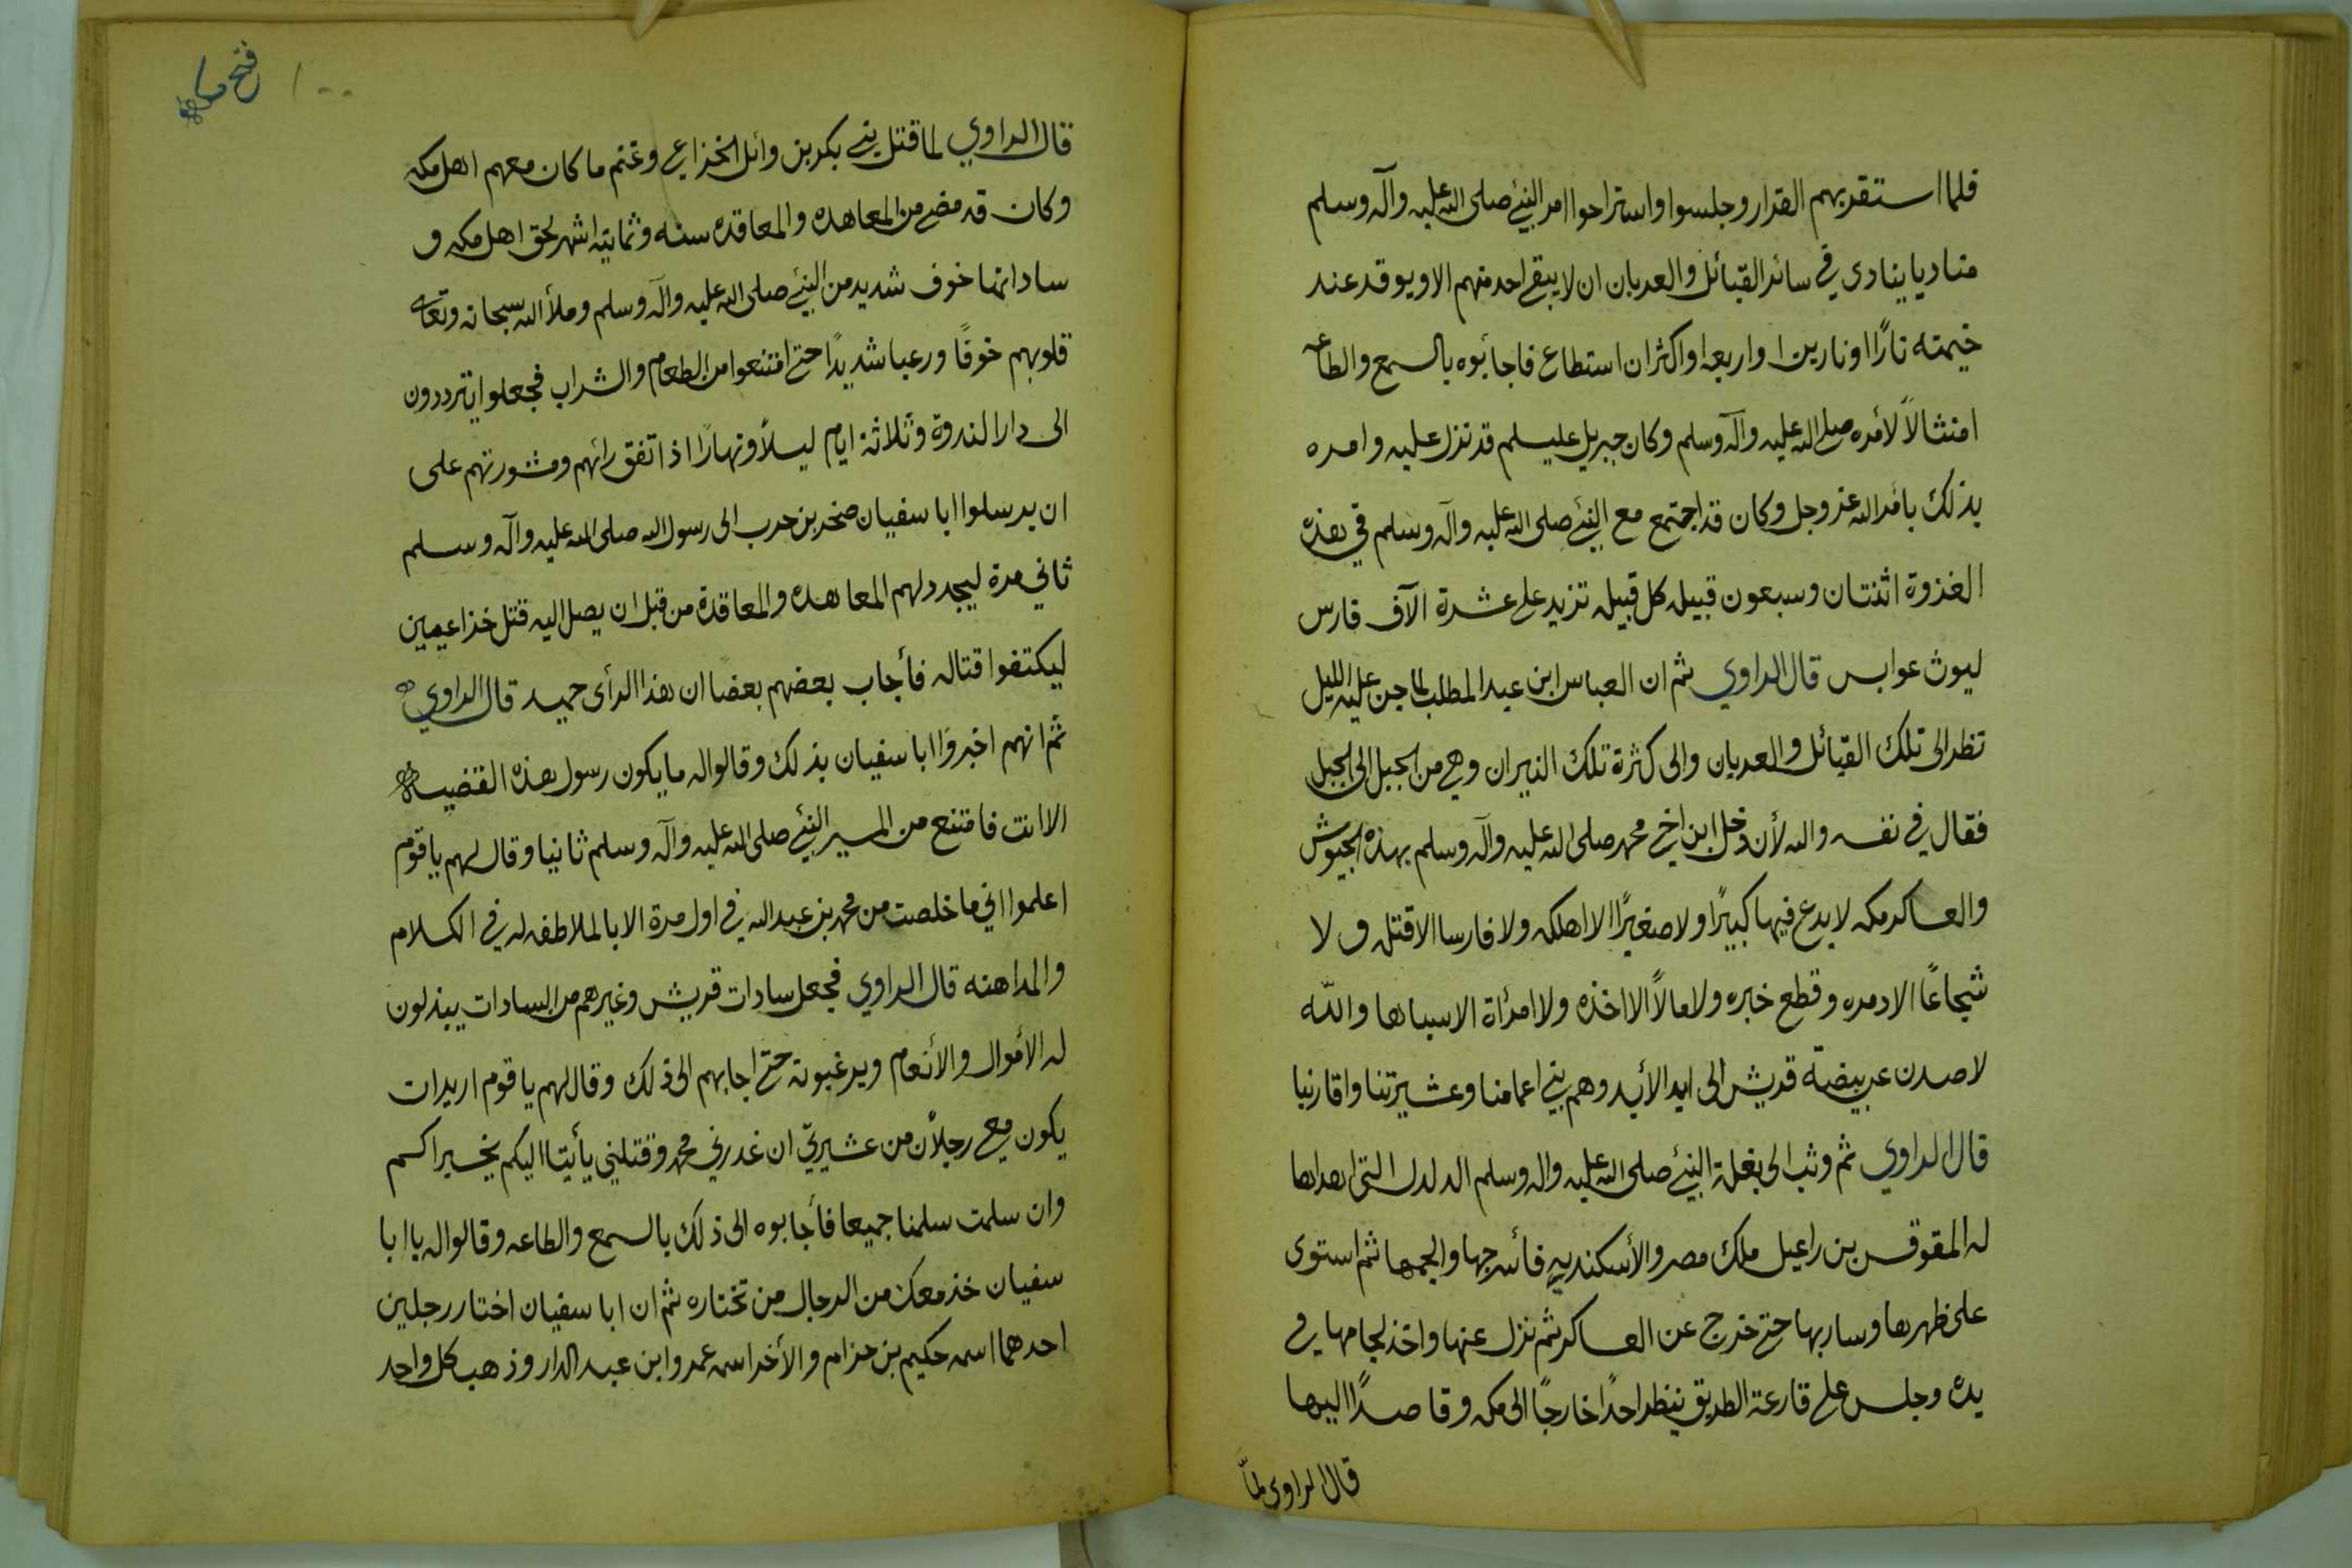 فلما استقر بهم القرار وجلسوا واستراحوا امر النبي صلى الله عليه وآله وسلم
مناديا ينادي في سائر القبائل والعربان ان لا يبقى احد منهم الا ويوقد عند
خيمته نارًا او نارين او اربعه او اكثر ان استطاع فاجائبوه بالسمع والطاعه
امتثالاً لأمره صلى الله عليه وآله وسلم وكان جبريل عليسلم قد نزل عليه وامره
بذلك بامر الله عز وجل وكان قد اجتمع مع النبي صلى الله عليه وآله وسلم في هذه
الغزوة اثنتان وسبعون قبيله كل قبيله تزيد على عشرة آلآف فارس
ليوث عوابس قال الراوي ثم ان العباس ابن عبد المطلب لما جن عليه الليل
نظر الى تلك القبائل والعربان والى كثرة تلك النيران وهي من الجبل الى الجبل
فقال في نفسه والله لأن دخل ابن اخي محمد صلى الله عليه وآله وسلم بهذه الجيوش
والعساكر مكه لا يدع فيها كبيرًا ولا صغيرًا الا اهلكه ولا فارسا الا قتله ولا
شجاعًا الا دمره وقطع خبره ولا مالاً الا اخذه ولا امرأة الا سباها والله
لا صدن عن بيضة قريش الى ابد الأبد وهم بني اعمامنا وعشيرتنا واقاربنا
قال الراوي ثم وثب الى بغلة النبي صلى الله عليه واله وسلم الدلدل التي اهداها
له المقوقس بن راعيل ملك مصر والأسكندريه فأسرجها والجمها ثم استوى
على ظهرها وسار بها حتى خرج عن العساكر ثم نزل عنها واخذ لجامها في
يده وجلس على قارعة الطريق ينظر احدًا خارجًا الى مكه وقاصدًا اليها
قال الراوي لمّا
فتح مكه
١٠٠
قال الراوي لما قتل بني بكر بن وائل الخزاعي وغنم ما كان معهم اهل مكه
وكان قد مضى من المعاهده والمعاقده سنه وثمانية اشهر لحق اهل مكه و
ساداتها خوف شديد من النبي صلى الله عليه وآله وسلم وملأ الله سبحانه وتعالى
قلوبهم خوفًا ورعبا شديدًا حتى امتنعوا من الطعام والشراب فجعلوا يترددون
الى دار الندوة وثلاثة ايام ليلاً ونهارًا اذ اتفق رائهم ومشورتهم على
ان يرسلوا ابا سفيان صخر بن حرب الى رسول الله صلى الله عليه وآله وسلم
ثاني مرة ليجدد لهم المعاهده والمعاقدة من قبل ان يصل اليه قتل خزاعيين
ليكتفوا قتاله فأجاب بعضهم بعضًا ان هذا الرأى حميد قال الراوي
ثم انهم اخبروا ابا سفيان بذلك وقالوا له ما يكون رسول هذه القضيه
الا انت فامتنع من المسير النبي صلى الله عليه وآله وسلم ثانيا وقال لهم يا قوم
اعلموا اني ما خلصت من محمد بن عبد الله في اول مرة الا بالملاطفه له في الكلام
والمداهنه قال الراوي فجعل سادات قريش وغيرهم من السادات يبذلون
له الأموال والأنعام ويرغبونه حتى اجابهم الى ذلك وقال لهم يا قوم اريد ان
يكون معي رجلان من عشيرتي ان غدرني محمد وقتلني يأتيا اليكم يخبراكم
وان سلمت سلمنا جميعا فأجابوه الى ذلك بالسمع والطاعه وقالوا له يا ابا
سفيان خذ معك من الرجال من تختاره ثم ان ابا سفيان اختار رجلين
احدهما اسمه حكيم بن حزام والأخر اسمه عمرو ابن عبد الدار وذهب كل واحد